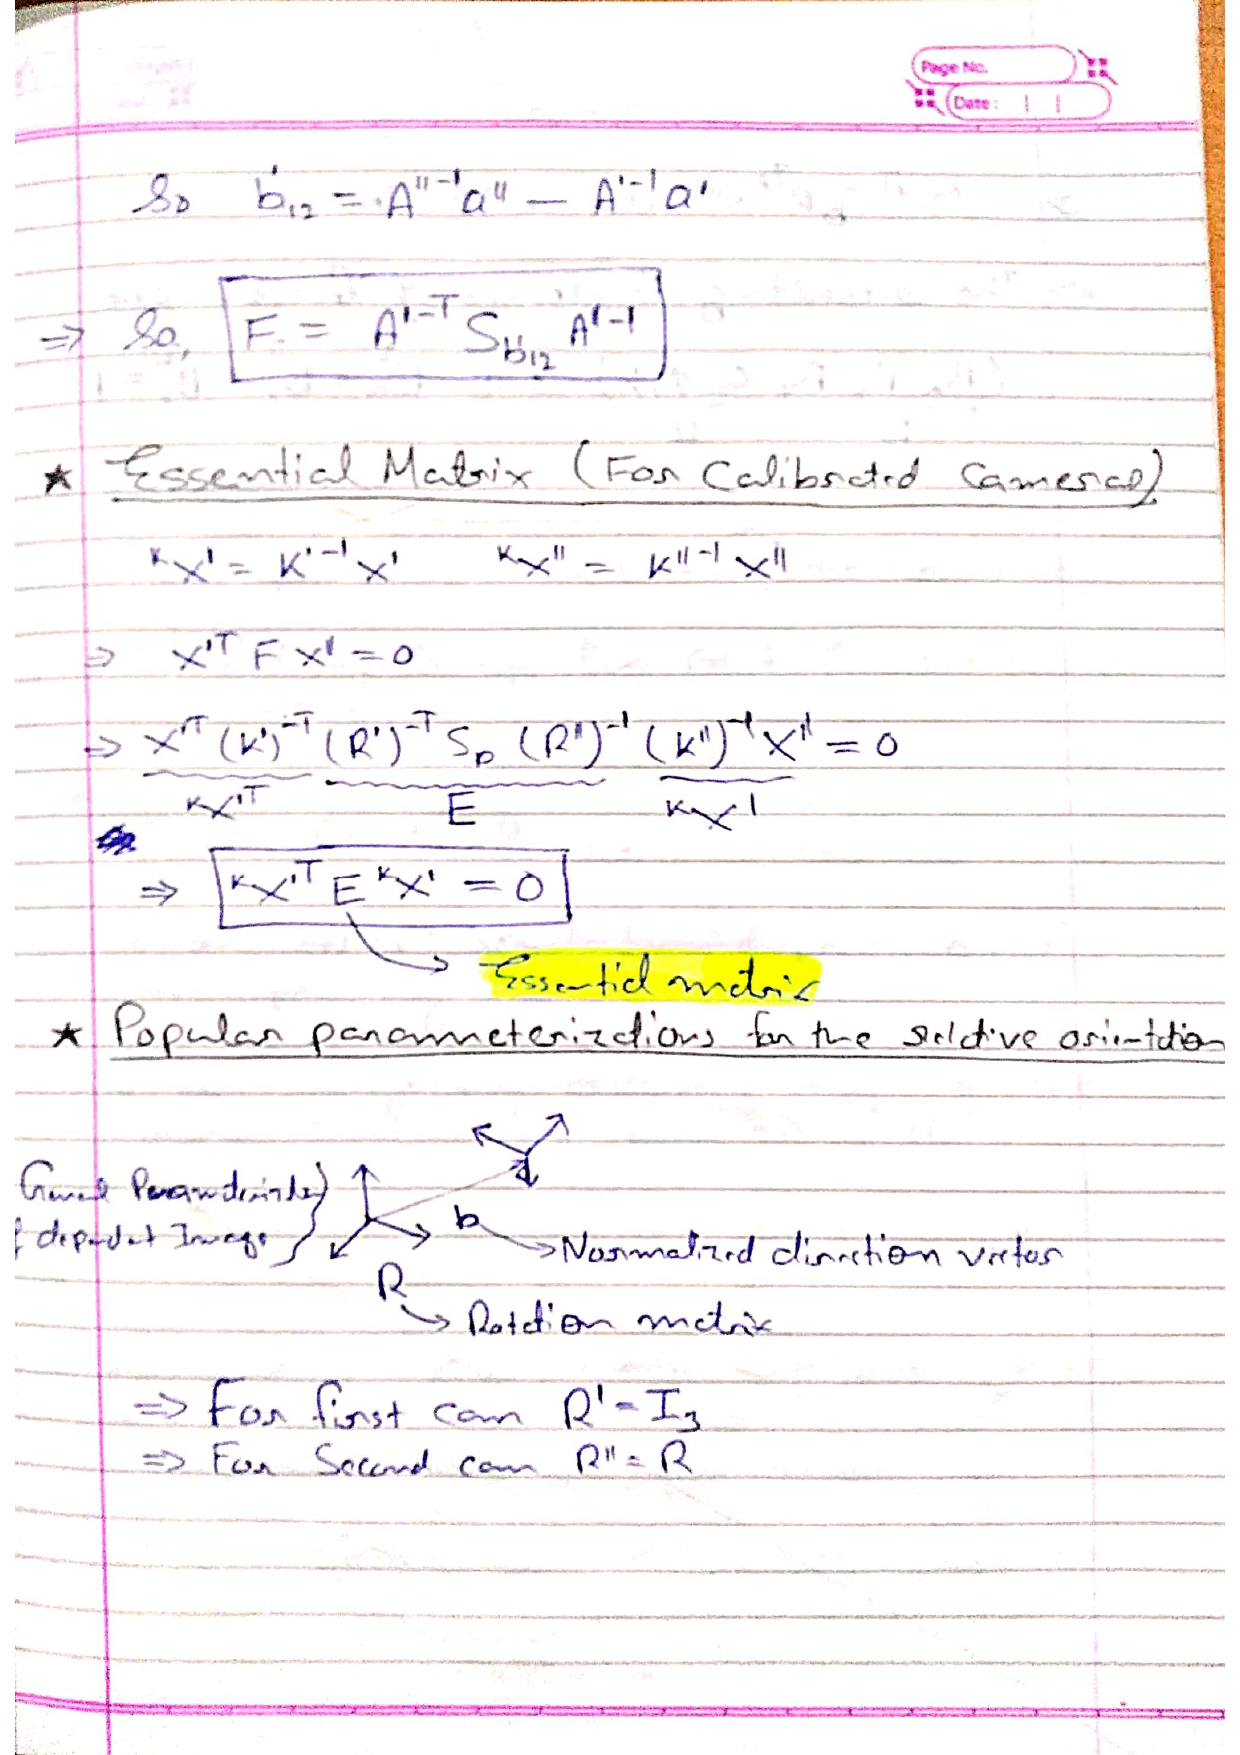 Page No.
Date: | |
So b₁₂ = A''⁻¹a'' − A'⁻¹a'
⇒ So, F = A'⁻ᵀ S_b₁₂ A'⁻¹
★ Essential Matrix (For Calibrated Cameras)
ᴷx' = K'⁻¹x' ᴷx'' = K''⁻¹x''
⇒ x'ᵀ F x'' = 0
⇒ x'ᵀ (K')⁻ᵀ (R')⁻ᵀ S_b (R'')⁻¹ (K'')⁻¹ x'' = 0
ᴷx'ᵀ E ᴷx'
⇒ ᴷx'ᵀ E ᴷx' = 0
Essential matrix
★ Popular parameterizations for the relative orientation
General Parameterized
of dependent Image
b → Normalized direction vector
R → Rotation matrix
⇒ For first cam R' = I₃
⇒ For Second cam R'' = R